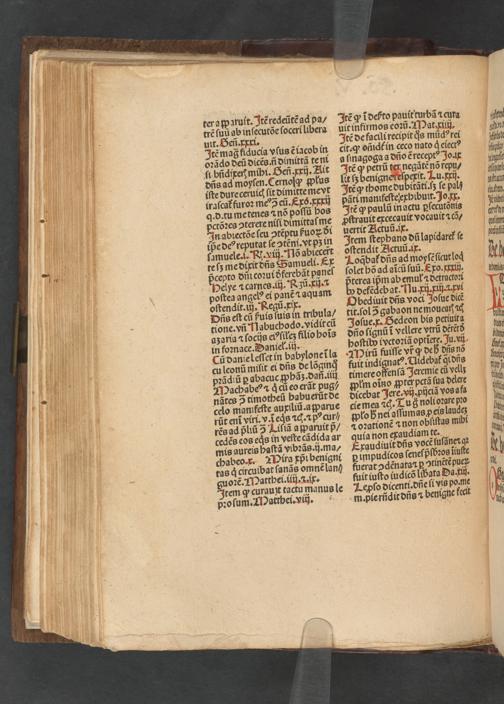 ter apparuit. Itē redeūtē ad pa/
trē suū ab insecutōe soceri libera
uit. Geñ. xxxi.
Itē mag̃ fiducia vsus ē iacob in
orādo deū dicēs. ñ dimittā te ni
si bñdixeris mihi. Geñ. xxxii. Ait
dñs ad moysen. Cerno
iste dure ceruic̄ sit dimitte me vt
irascať furor meꝰ ʒ eū. Exo. xxxii
q. d. tu me tenes ⁊ nō possū hos
pctōres ꝯterere nisi dimittas me
In abiectōe seu ꝯtēptu suoꝝ dñi
ip̄e deꝰ reputat se ꝯtēni. vt pʒ in
samuele. i. Rꝭ. viii. Nō abiecerūt
te sʒ me dixit dñs Samueli. Ex
p̄cepto dñi corui deferebāt panes
Helye ⁊ carnes. iii. Rꝝ. xvii. ⁊
postea angelꝰ ei panē ⁊ aquam
ostendit. iii. Regū. xix.
Dñs est cū suis suis in tribula/
tione. vñ Nabuchodo. vidit cū
azaria ⁊ sociis eiꝰ silēʒ filio hoīs
in fornace. Daniel. iii.
Cū daniel esset in babylone ī la
cu leonū misit ei dñs de lōginqͦ
prādiū ꝑ abacuc ꝓphāʒ. dañ. xiiii
Machabeꝰ ⁊ q̄ cū eo erāt pug/
nātes ʒ timotheū habuerūt de
celo manifeste auxiliū. apparue
rūt eni viri. v. ī eqͥs ⁊c. ⁊ pꝰ cur/
rēs ad plīū ʒ Lisiā apparuit p̄/
cedēs eos eqͥs in veste cādida ar
mis aureis hastā vibrās. ii. ma/
chabeo. x. Mira xp̄i benigni
tas q̄ circuibat sanās omnē lan/
guorē. Matthei. iiii. ⁊ ix.
Item ꝙ curauit tactu manus le
prosum. Matthei. viii.
Itē ꝙ ī deꝑto pauit turbā ⁊ cura
uit infirmos eorū. Mat. xiiii.
Itē de facili recipit q̄s mūdꝰ rei
cit. ꝙ oñdiť in ceco nato q̄ eiectꝰ
a sinagoga a dño ē receptꝰ Jo. ix
Itē ꝙ petrū ter negātē nō repu/
lit sʒ benigne respexit. Lu. xxii.
Itē ꝙ thome dubitāti. sʒ se pal/
pāti manifeste exhibuit. Jo. xx.
Itē ꝙ paulū in actu psecutōnis
ꝓstrauit excecauit vocauit ⁊ cō/
uertit Actuū. ix.
Item stephano dñ lapidareť se
ostendit Actuū.
Loq̄bať dñs ad moysē sicut loq̄
solet hō ad aīcū suū. Exo. xxxiii.
Prerea ipm ab emulꝭ ⁊ detractori
bꝰ defēdebat. Nu. xii. xiiii. ⁊ xvi
Obediuit dñs voci Josue dicē
tis. sol ʒ gabaon ne mouearis ⁊c
Josue. x. Gedeon bis petiuit a
dño signū ī vellere
hostibꝰ victoriā optineret. Ju. vi.
Mirū fuisse vr̄ ꝙ deꝰ dñs nō
fuit indignatꝰ. Uidebať q̄i dñs
timere offensā Jeremie cū vellʒ
pplm oīno ꝓpter pctā sua delere
dicebat Jere. vii. proiiciā vos a fa
cie mea ⁊c. Tu g̃ noli orare pro
pplo hͦ nec assumas ꝓ eis laudeʒ
⁊ orationē ⁊ non obsistas mihi
quia non exaudiam te.
Exaudiuit dñs vocē susāne q̄
ꝑ impudicos senes p̄sbros iniuste
fuerat ꝯdēnata
fuit iusto iudicō libata Da. xiii.
Lepso dicenti. dñe si vis po. me
m. pie rñdit dñs ⁊ benigne fecit